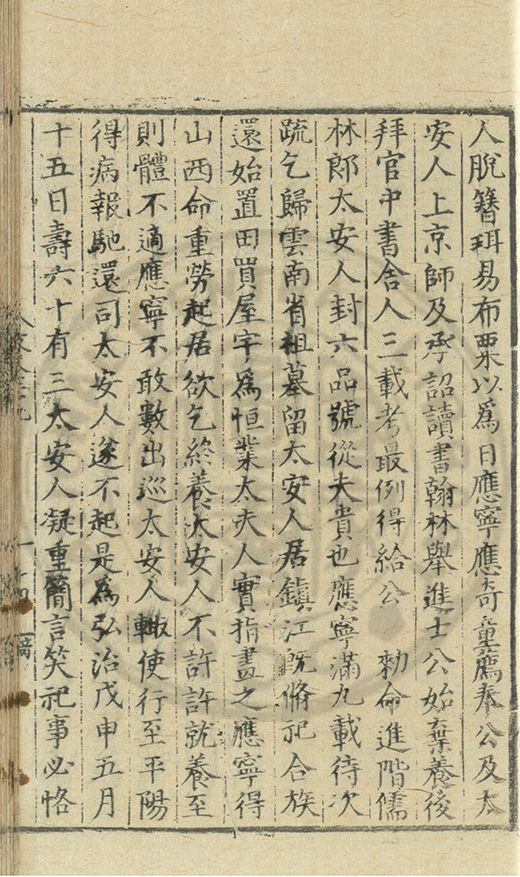 人脫簪珥易布粟以爲日應寧應奇童薦奉公及太
安人上京師及承詔讀書翰林舉進士公始棄養後
拜官中書舍人三載考最例得給公　勑命進階儒
林郎太安人封六品號從夫貴也應寧滿九載待次
疏乞歸雲南省祖墓留太安人居鎮江旣脩祀合族
還始置田買屋宇爲恒業太夫人實指畫之應寧得
山西命重勞起居欲乞終養太安人不許許就養至
則體不適應寧不敢數出巡太安人輙使行至平陽
得病報馳還司太安人遂不起是爲弘治戊申五月
十五日壽六十有三太安人凝重簡言笑祀事必恪